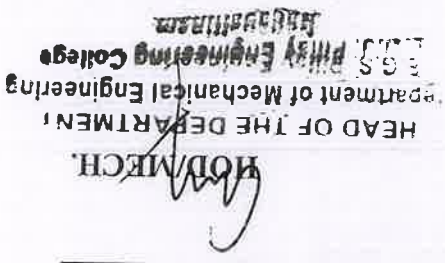 HOD/MECH.
HEAD OF THE DEPARTMENT
Department of Mechanical Engineering
E.G.S. Pillay Engineering College
Nagapattinam